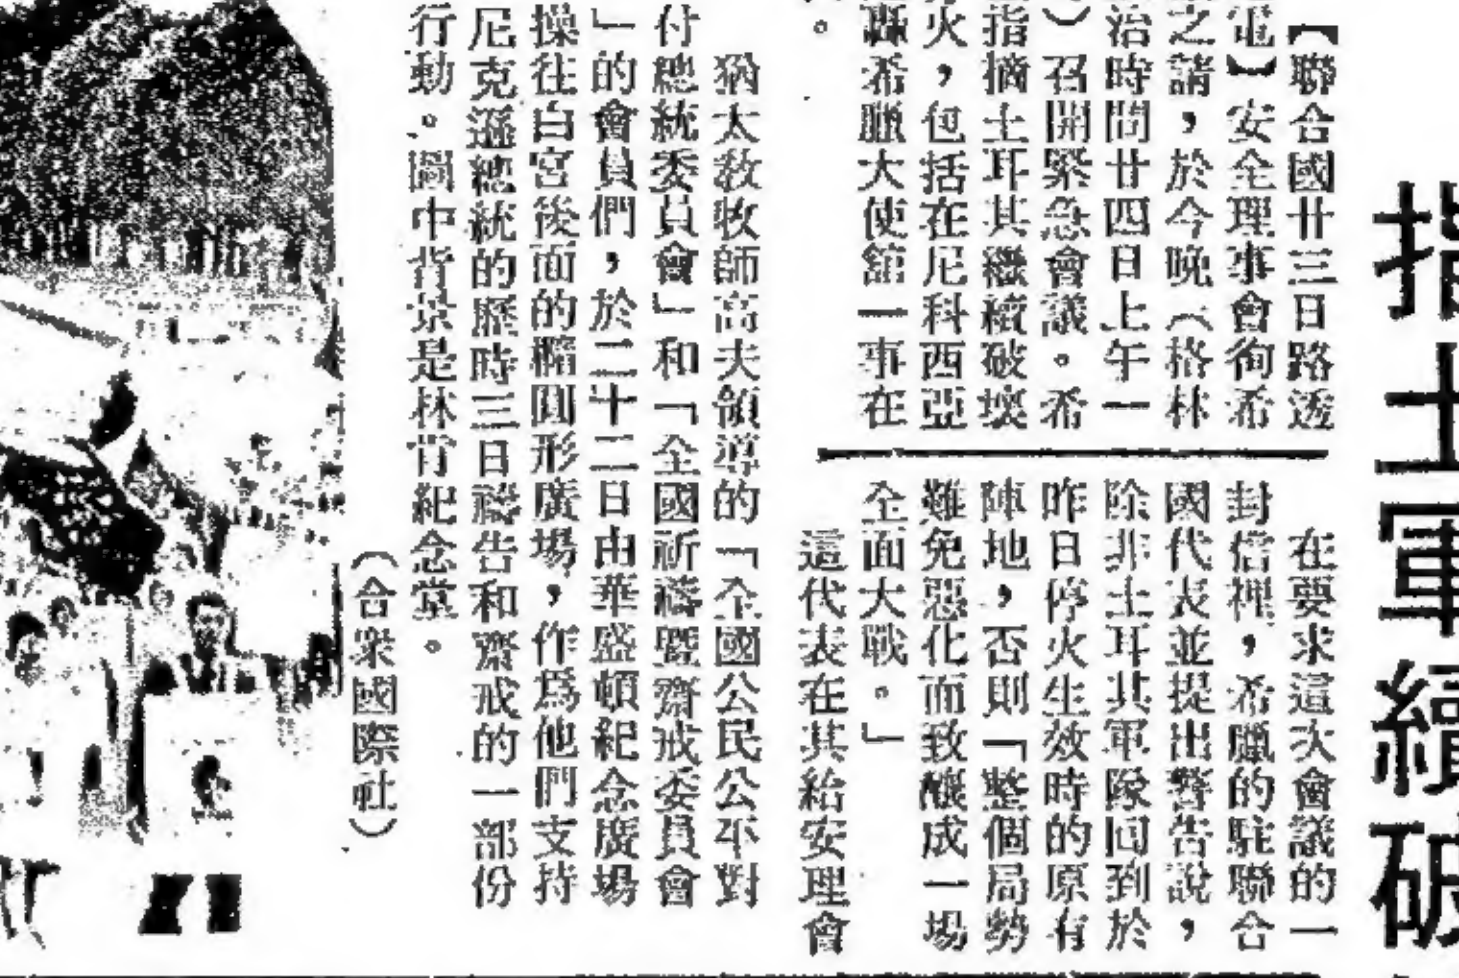 指土軍續破
【聯合國廿三日路透
電】安全理事會徇希
之請，於今晚（格林
治時間廿四日上午一
）召開緊急會議。希
指摘土耳其繼續破壞
火，包括在尼科西亞
轟希臘大使館一事在
。
在要求這次會議的一
封信裡，希臘的駐聯合
國代表並提出警告說，
除非土耳其軍隊回到於
昨日停火生效時的原有
陣地，否則「整個局勢
難免惡化而致釀成一場
全面大戰。」
這代表在其給安理會
猶太教牧師高夫領導的「全國公民公平對
付總統委員會」和「全國祈禱暨齋戒委員會
」的會員們，於二十二日由華盛頓紀念廣場
操往白宮後面的橢圓形廣場，作爲他們支持
尼克遜總統的歷時三日禱告和齋戒的一部份
行動。圖中背景是林肯紀念堂。
（合衆國際社）